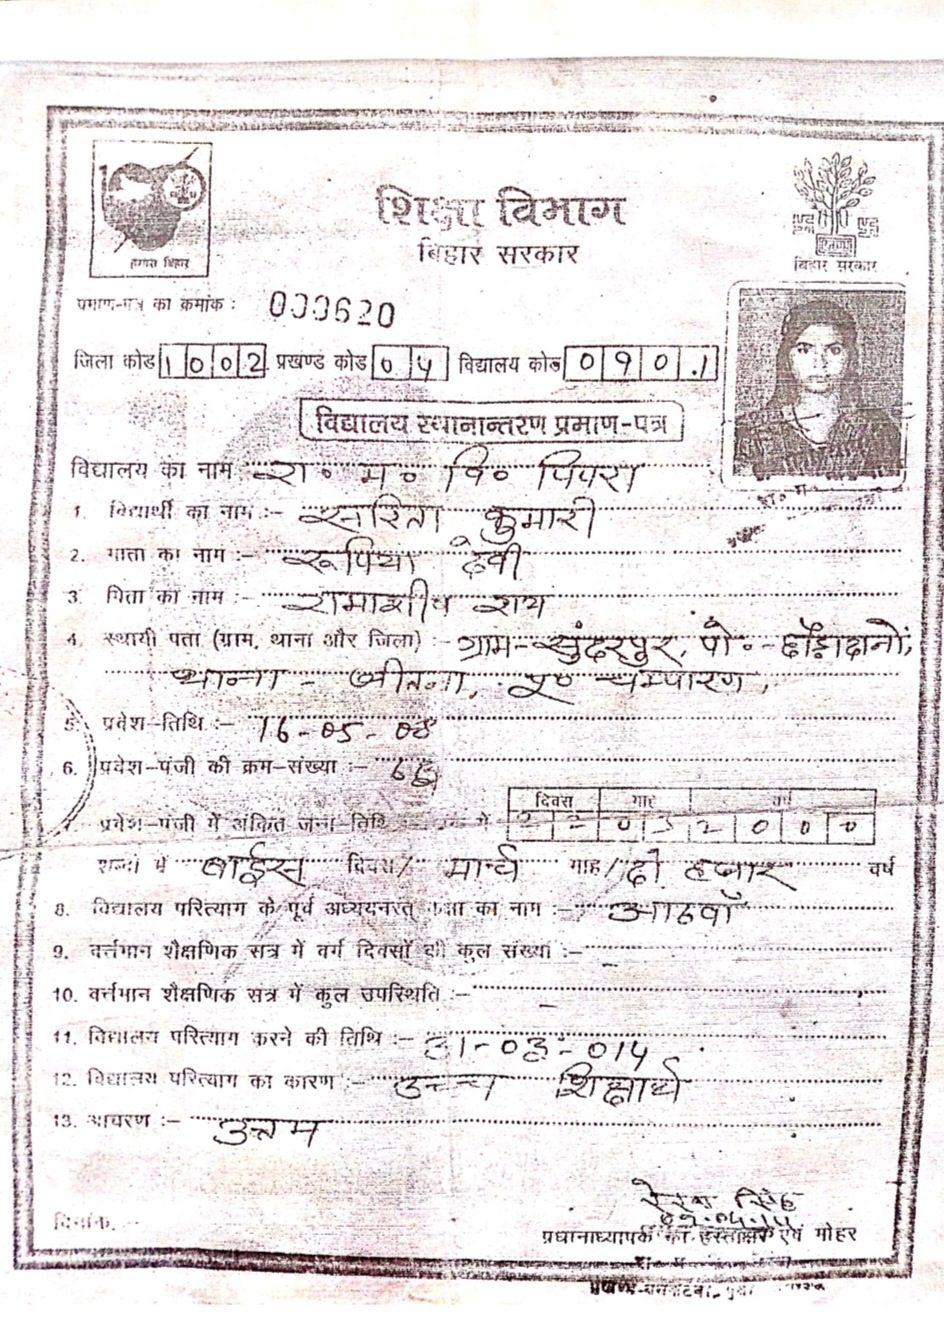 हमारा बिहार
शिक्षा विभाग
बिहार सरकार
बिहार सरकार
प्रमाण-पत्र का क्रमांक : 000620
जिला कोड 1002 प्रखण्ड कोड 04 विद्यालय कोड 0901
विद्यालय स्थानान्तरण प्रमाण-पत्र
विद्यालय का नाम रा० म० वि० पिपरा
1. विद्यार्थी का नाम :- सरिता कुमारी
2. माता का नाम :- रूपिया देवी
3. पिता का नाम :- रामाशीष राय
4. स्थायी पता (ग्राम, थाना और जिला) :- ग्राम-सुंदरपुर, पो०-छौड़ादानो,
थाना - जीतना, पू० चम्पारण,
5. प्रवेश-तिथि :- 16-05-08
6. प्रवेश-पंजी की क्रम-संख्या :-
दिवस माह वर्ष
7. प्रवेश-पंजी में अंकित जन्म-तिथि में 22 03 2000
शब्दों में बाईस दिवस/ मार्च माह/ दो हजार वर्ष
8. विद्यालय परित्याग के पूर्व अध्ययनरत् कक्षा का नाम :- आठवाँ
9. वर्त्तमान शैक्षणिक सत्र में वर्ग दिवसों की कुल संख्या :- -
10. वर्त्तमान शैक्षणिक सत्र में कुल उपस्थिति :- -
11. विद्यालय परित्याग करने की तिथि :- 31-03-014
12. विद्यालय परित्याग का कारण :- उच्च शिक्षार्थ
13. आचरण :- उत्तम
सिंह
दिनांक. --
प्रधानाध्यापक का हस्ताक्षर एवं मोहर